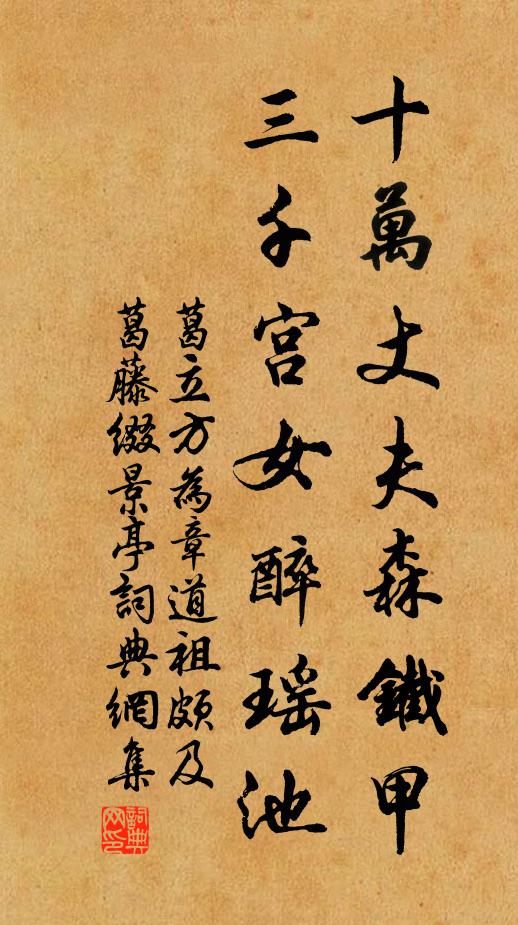 十萬丈夫森鐵甲
三千宫女醉瑶池
葛立方為章道祖頗及
葛藤缀景亭詞典網集
詞典网印